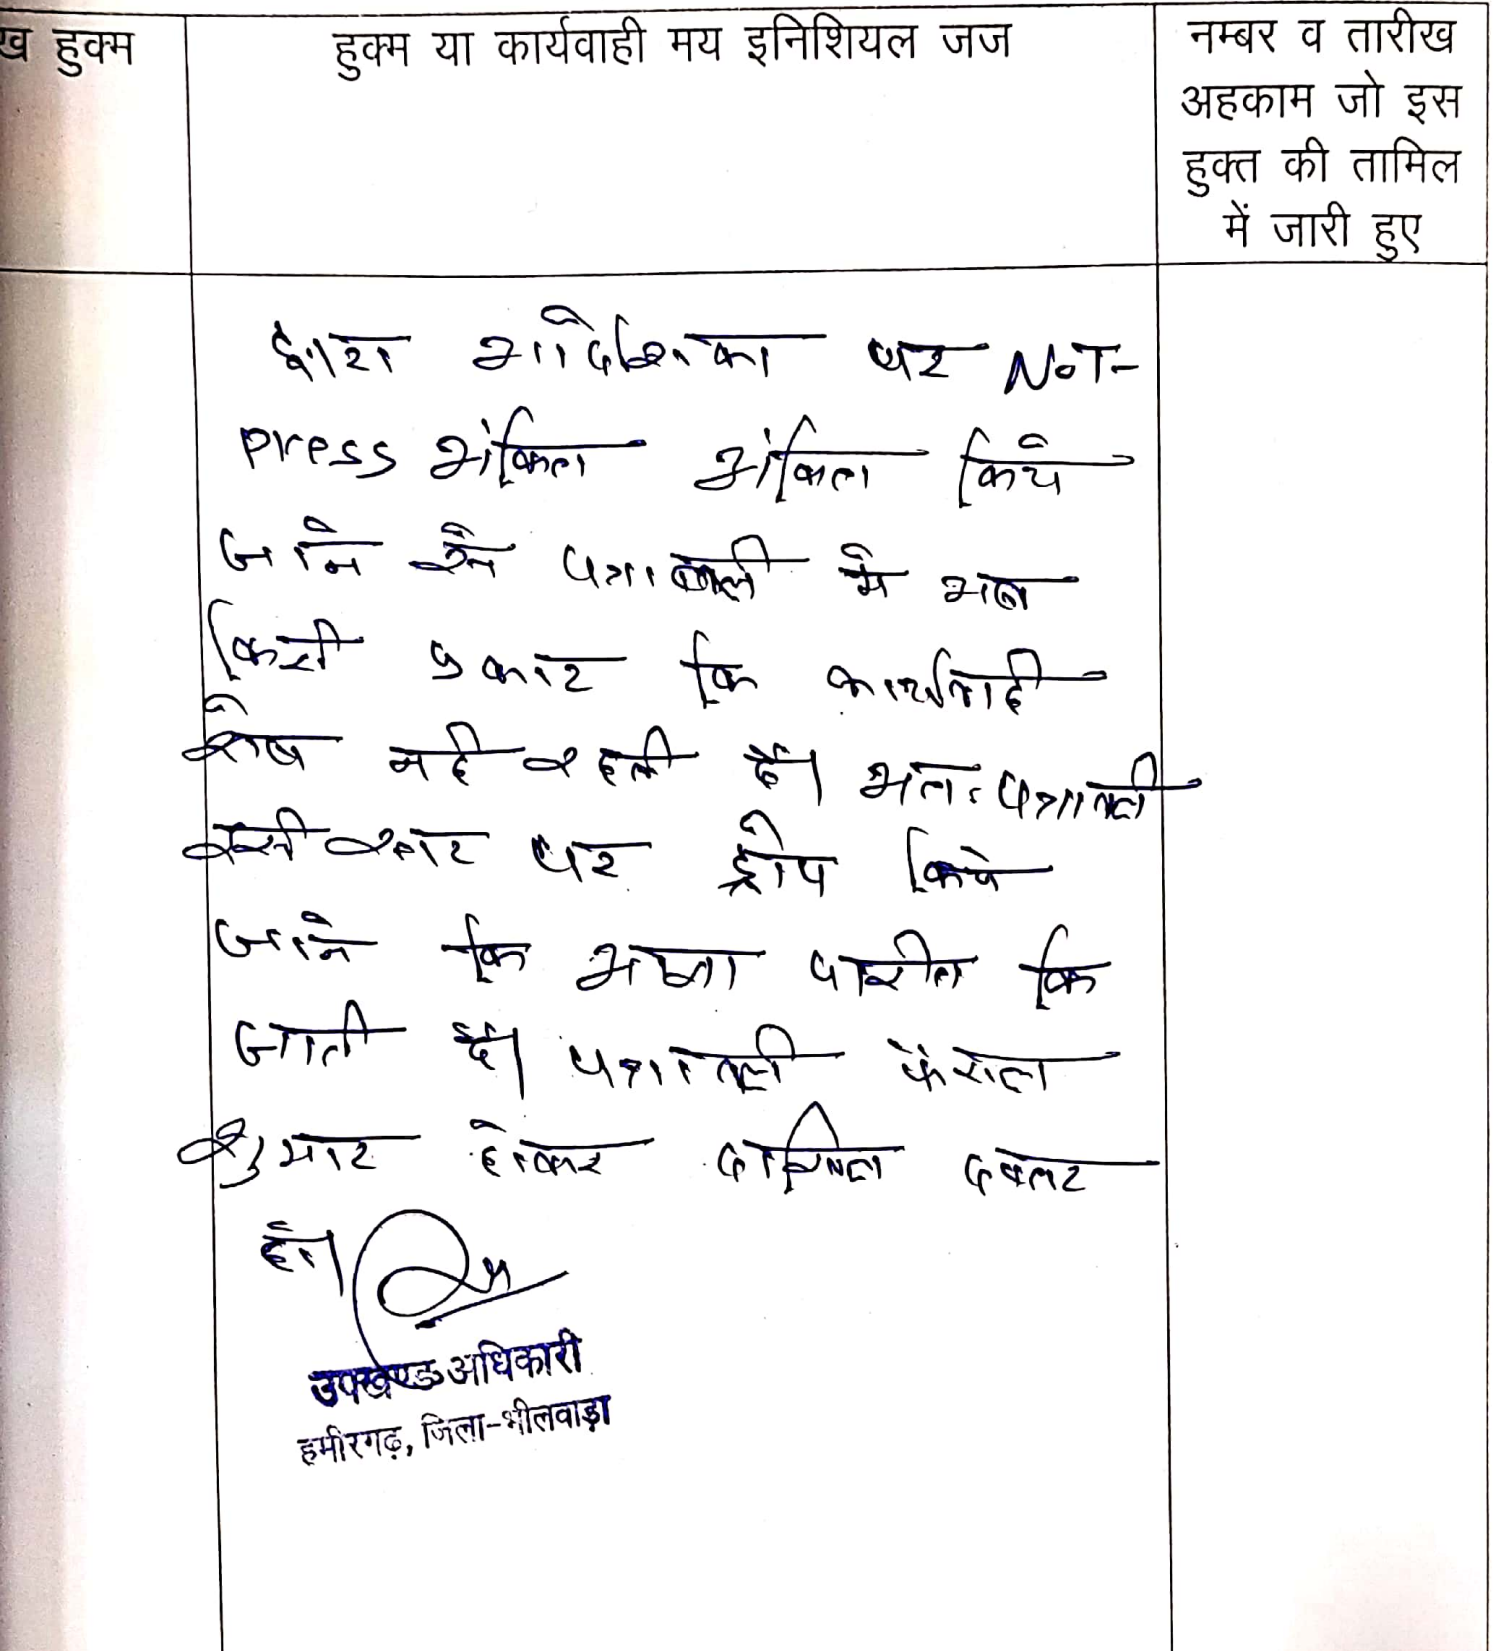 ख हुक्म
हुक्म या कार्यवाही मय इनिशियल जज
नम्बर व तारीख
अहकाम जो इस
हुक्त की तामिल
में जारी हुए
द्वारा आदेशिका पर NoT-
press अंकित अंकित किये
जाने से पत्रावली मे अब
किसी प्रकार कि कार्यवाही
शेष नही रहती है। अतः पत्रावली
इसी स्तर पर ड्रोप किये
जाने कि आज्ञा पारीत कि
जाती है। पत्रावली फैसल
शुमार होकर दाखिल दफ्तर
हो।
उपखण्ड अधिकारी
हमीरगढ़, जिला-भीलवाड़ा